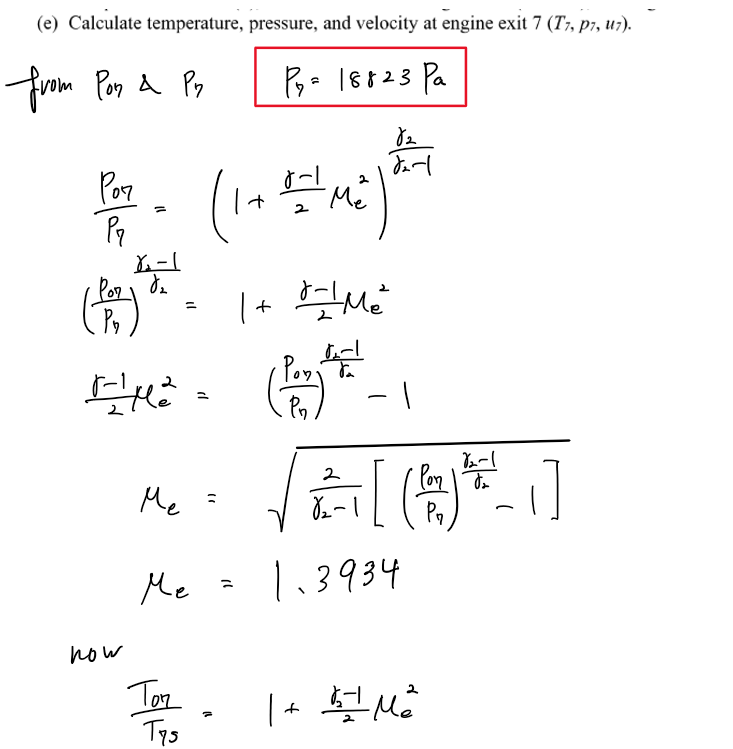 (e) Calculate temperature, pressure, and velocity at engine exit 7 (T₇, p₇, u₇).
from P₀₇ & P₇ P₇ = 18823 Pa
P₀₇/P₇ = (1 + (γ-1)/2 Mₑ²)^(γ₂/(γ₂-1))
(P₀₇/P₇)^((γ₂-1)/γ₂) = 1 + (γ-1)/2 Mₑ²
(γ-1)/2 Mₑ² = (P₀₇/P₇)^((γ₂-1)/γ₂) - 1
Mₑ = √(2/(γ₂-1) [(P₀₇/P₇)^((γ₂-1)/γ₂) - 1])
Mₑ = 1.3934
now
T₀₇/T₇s = 1 + (γ₂-1)/2 Mₑ²